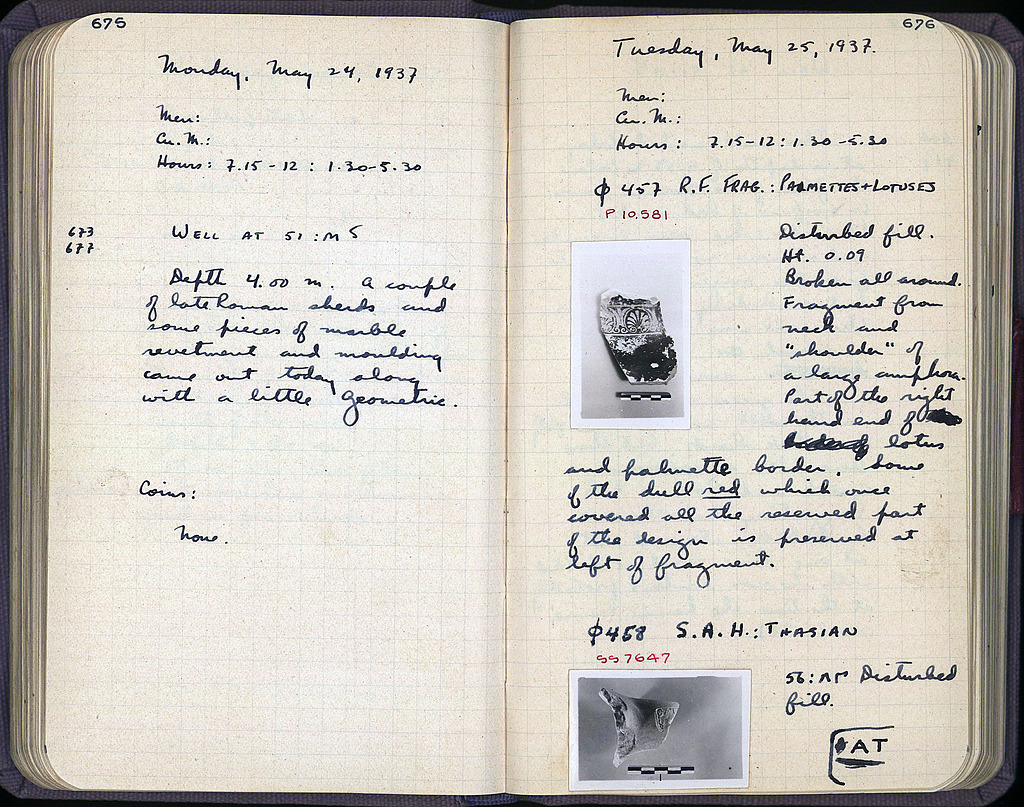 675
Monday, May 24, 1937
Men:
Cu. M.:
Hours: 7.15-12 : 1.30-5.30
673
677
WELL AT 51:
Depth 4.00 m. A couple
of late Roman sherds and
some pieces of marble
revetment and moulding
came out today along
with a little Geometric.
Coins:
None.
676
Tuesday, May 25, 1937.
Men:
Cu. M.:
Hours: 7.15-12 : 1.30-5.30
φ 457 R.F. FRAG.: PALMETTES+LOTUSES
P 10,581
Disturbed fill.
Ht. 0.09
Broken all around.
Fragment from
neck and
"shoulder" of
a large amphora.
Part of the right
hand end of
lotus
and palmette border. Some
of the dull red which once
covered all the reserved part
of the design is preserved at
left of fragment.
φ 458 S.A.H.: THASIAN
SS 7647
56: Disturbed
fill.
AT